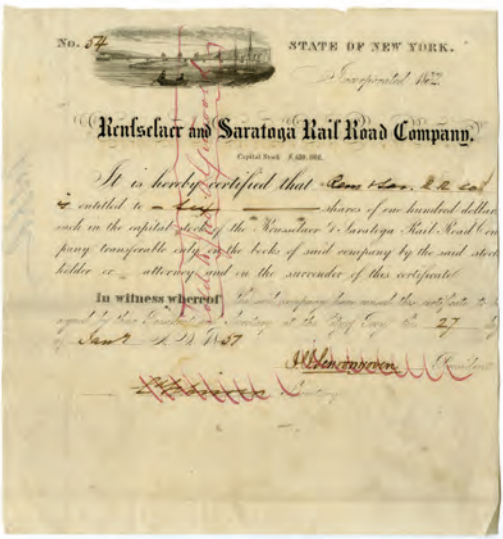 No. 54
STATE OF NEW YORK.
Incorporated 1832
Rensselaer and Saratoga Rail Road Company.
Capital Stock
It is hereby certified that Rens & Sar. R R Co
is entitled to shares of one hundred dollars
each in the capital stock of the Rensselaer & Saratoga Rail Road Com
pany, transferable only on the books of said company by the said stock
holder or attorney and on the surrender of this certificate
In witness whereof the said company have caused this certificate to
signed by their President and Secretary at the City of Troy the 27 day
of Jany A.D. 1857
President
Secretary